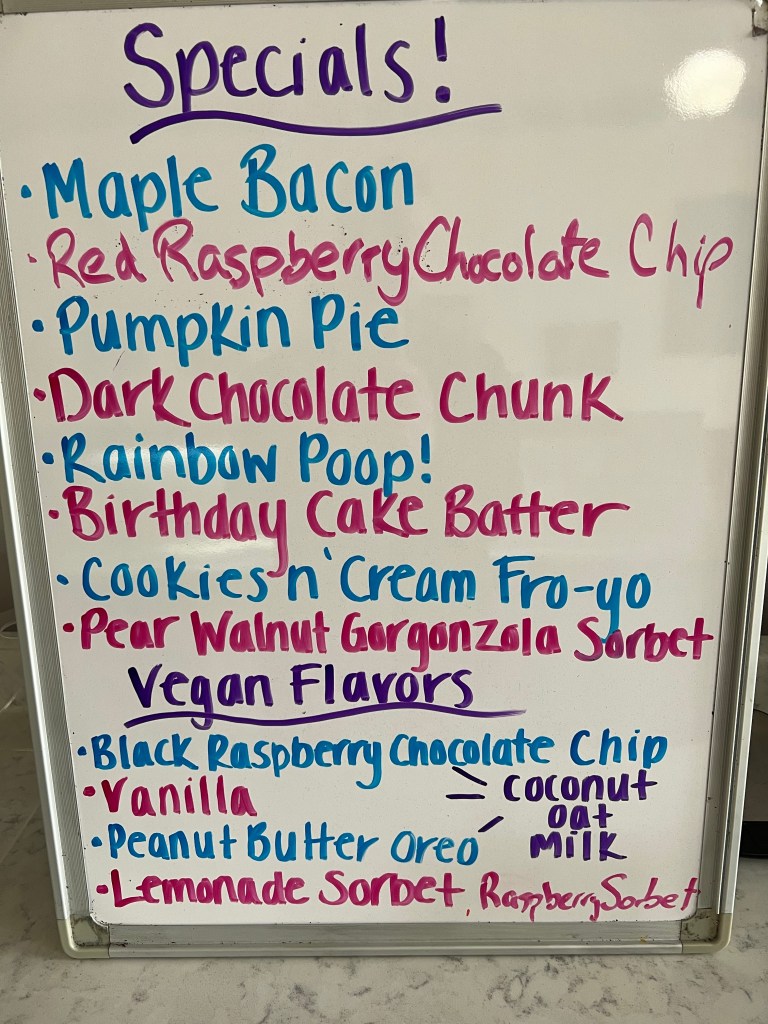 Specials!
• Maple Bacon
• Red Raspberry Chocolate Chip
• Pumpkin Pie
• Dark Chocolate Chunk
• Rainbow Poop!
• Birthday Cake Batter
• Cookies n' Cream Fro-yo
• Pear Walnut Gorgonzola Sorbet
Vegan Flavors
• Black Raspberry Chocolate Chip
• Vanilla
• Peanut Butter Oreo
coconut
oat
milk
• Lemonade Sorbet, Raspberry Sorbet